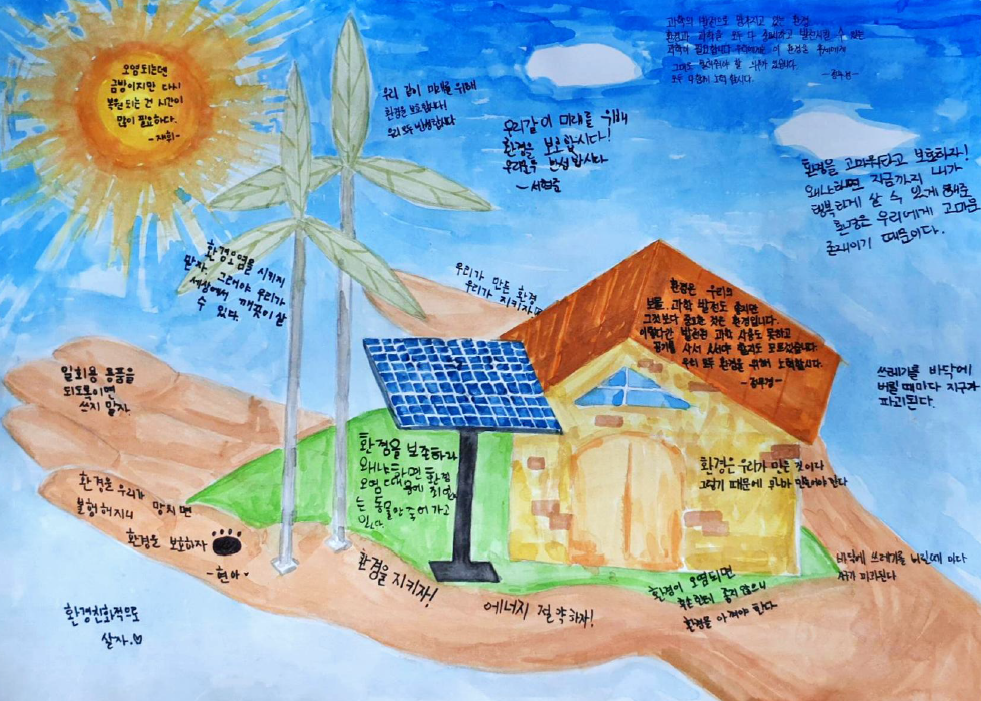 오염되는덴
금방이지만 다시
복원 되는 건 시간이
많이 필요하다.
-재휘-
과학의 발전으로 망가지고 있는 환경
환경과 과학을 모두 다 발전시킬 수 있는
과학이 필요합니다 이 환경을
의무가 있습니다.
모두 노력 합시다.
우리 같이 미래를 위해
환경을 보호합시다!
우리 모두 반성합시다
우리같이 미래를 위해
환경을 보호합시다!
우리모두 반성합시다
-서현준
환경을 고마워하고 보호하자!
왜냐하면 지금까지 내가
행복하게 살 수 있게 해준
환경은 우리에게 고마운
존재이기 때문이다.
환경오염을 시키지
말자. 그래야 우리가
세상에서 깨끗이 살
수 있다.
우리가 만든 환경
우리가 지키자
환경은 우리의
보물. 과학 발전도 좋지만
그것보다 중요한 것은 환경입니다.
이렇다간 발전된 과학 사용도 못하고
공기를 사서 써야 할지도 모르겠습니다.
우리 모두 환경을 위해 노력합시다.
일회용 용품을
되도록이면
쓰지 말자
쓰레기를 바닥에
버릴 때마다 지구가
파괴된다.
환경을 보존하라
왜냐하면 환경
오염 때문에 죄 없
는 동물만 죽어 가고
있다.
환경은 우리가 만든 것이다
그렇기 때문에 한다
환경을 우리가 망치면
불행해지니
환경을 보호하자
-현아-
환경을 지키자!
에너지 절약하자!
환경이 오염되면
좋지 않으니
환경을 아껴야 한다.
바닥에 쓰레기를 버릴때 마다
지구가 파괴된다
환경친화적으로
살자.♡